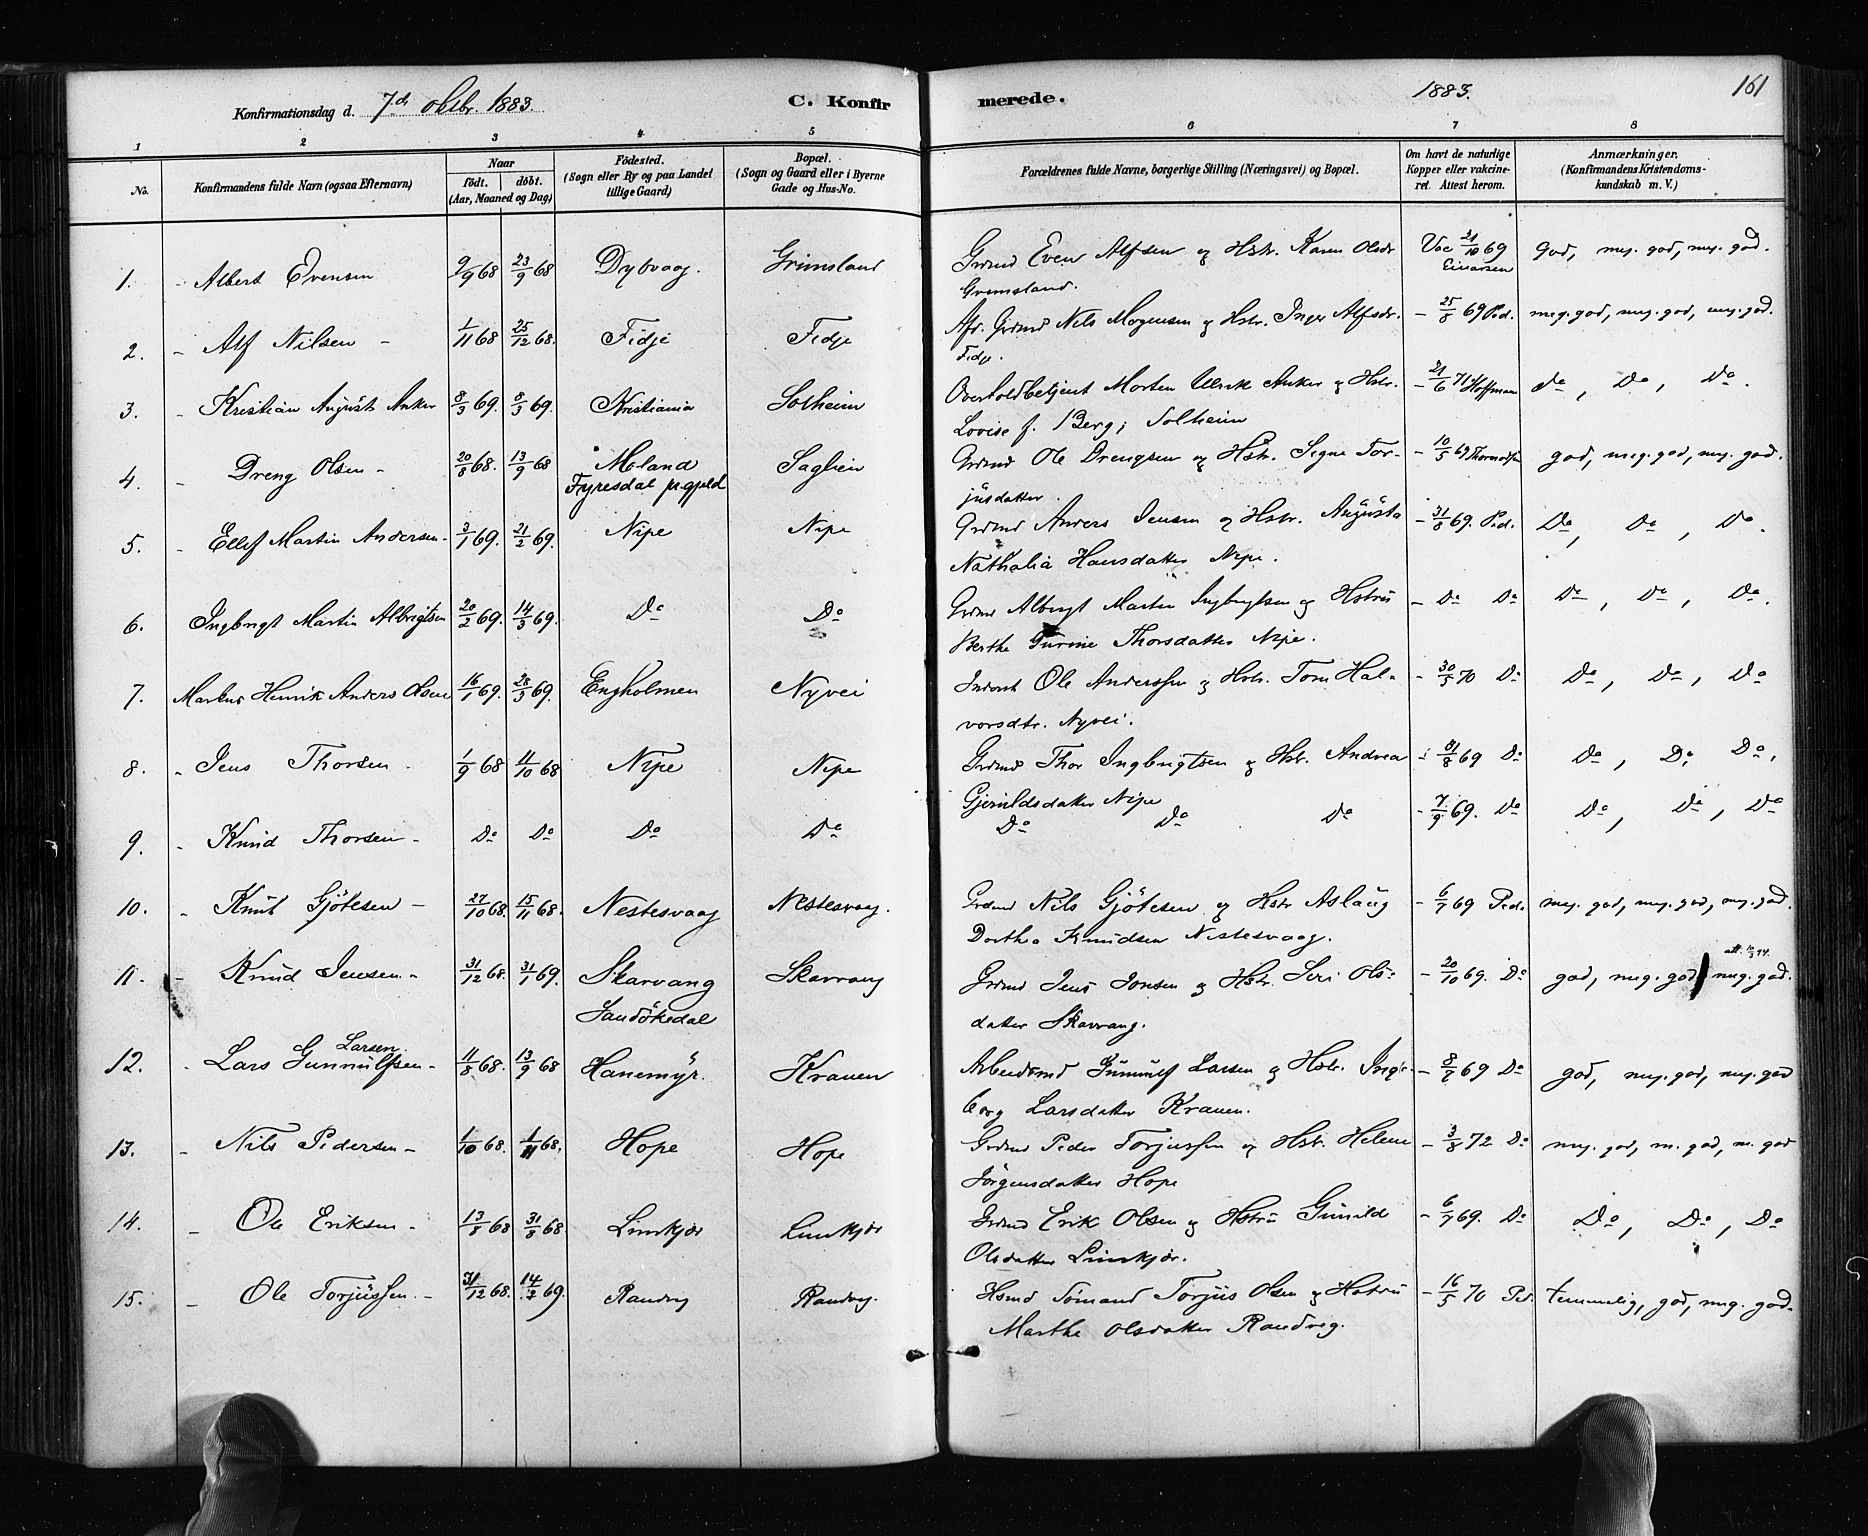 Konfirmationsdag d. 7de oktbr. 1883. C. Konfirmerede. 1883. 161
1 2 3 4 5 6 7 8
No. Konfirmandens fulde Navn (ogsaa Efternavn) Naar født. døbt. (Aar, Maaned og Dag) Födested. (Sogn eller By og paa Landet tillige Gaard) Bopæl. (Sogn og Gaard eller i Byerne Gade og Hus-No. Forældrenes fulde Navne, borgerlige Stilling (Næringsvei) og Bopæl. Om havt de naturlige Kopper eller vakcineret. Attest herom. Anmærkninger. (Konfirmandens Kristendomskundskab m. V.)
1. - Albert Evensen 9/9 68 23/9 68 Dybvaag. Grimsland Grdmd Even Alfsen og Hstr. Karen Olsdr Vac 21/10 69 Einarsen god, meg. god, meg. god.
Grimsland.
2. - Alf Nilsen - 1/11 68 25/12 68. Fidje Fidje Afd. Grdmd Nils Mogensen og Hstr. Inger Alfsdr. - 25/8 69 Ped. meg. god, meg. god, meg. god.
Fidje.
3. - Kristian August Anker 8/3 69. 8/3 69. Kristiania Solheim Overtoldbetjent Morten Ulrik Anker og Hstr. - 21/6 71 Hoffman do, Do, Do.
Lovise f. Berg; Solheim
4. - Dreng Olsen - 20/8 68. 13/9 68 Moland Saglien Grdmd Ole Drengsen og Hstr. Signe Tor- - 10/5 69 Thormodsen god, meg. god, meg. god.
Fyresdal prgjeld jusdatter.
5. - Ellef Martin Andersen - 3/1 69. 21/2 69. Nipe Nipe Grdmd Anders Jensen og Hstr. Augusta - 31/8 69. Ped. Do, Do, Do.
Nathalia Hansdatter Nipe.
6. Ingbrigt Martin Albrigtsen 20/2 69. 14/3 69. Do Do Grdmd Albrigt Martin Ingbrigtsen og Hstru - Do Do Do, Do, Do.
Berthe Gurine Thorsdatter Nipe.
7. Markus Henrik Anders Olsen 16/1 69. 28/3 69. Engholmen Nyvei Inderst Ole Anderssen og Hstr. Tone Hal- - 30/5 70 Do Do, Do, Do
vorsdtr. Nyvei.
8. - Jens Thorsen 1/9 68 11/10 68 Nipe Nipe Grdmd Thor Ingbrigtsen og Hstr. Andrea - 31/8 69 Do Do, Do, Do,
Gjeruldsdatter Nipe
9. - Knud Thorsen - Do Do Do Do Do Do Do - 7/9 69. Do Do, Do, Do
10. - Knut Gjötesen - 27/10 68. 15/11 68. Nestesvaag Nestesvaag. Grdmd Nils Gjötesen og Hstr Aslaug - 6/7 69 Ped. meg. god, meg. god, meg. god.
Dorthea Knudsen Nestesvaag.
11. - Knud Jensen - 31/12 68. 31/1 69. Skarvang Skarvang Grdmd Jens Jonsen og Hstr. Siri Ols- - 20/10 69. Do god, meg. god, meg. god.
Sandökedal datter Skarvang.
12. - Lars Larsen Gunnulfsen - 11/8 68. 13/9 68 Hanemyr. Kranen Arbeidsmd Gunnulf Larsen og Hstr. Inge- - 8/7 69 Do god, meg. god, meg. god
borg Larsdatter Kranen.
13. - Nils Pedersen - 1/10 68. 1/11 68. Hope Hope Grdmd Peder Torjussen og Hstr. Helene - 3/8 72 Do meg. god, m. god, m. god
Jörgensdatter Hope
14. - Ole Eriksen - 13/8 68 31/8 68. Limkjær Limkjær Grdmd Erik Olsen og Hstru Gunild - 6/7 69. Do Do, Do, Do
Olsdatter Limkjær.
15. - Ole Torjussen - 31/12 68. 14/2 69. Randvig Randvig. Hsmd Sömand Torjus Olsen og Hstru - 16/5 70 Ped. temmelig, god, meg. god.
Marthe Olsdatter Randvig.